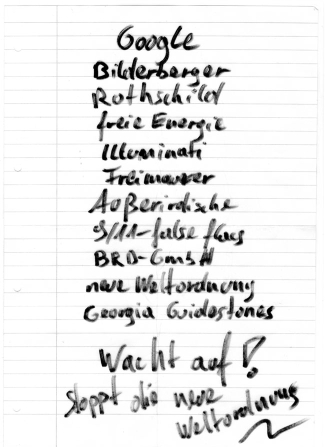 Google
Bilderberger
Rothschild
freie Energie
Illuminati
Freimaurer
Außerirdische
9/11-false flag
BRD-GmbH
neue Weltordnung
Georgia Guidestones
Wacht auf!
stoppt die neue
Weltordnung